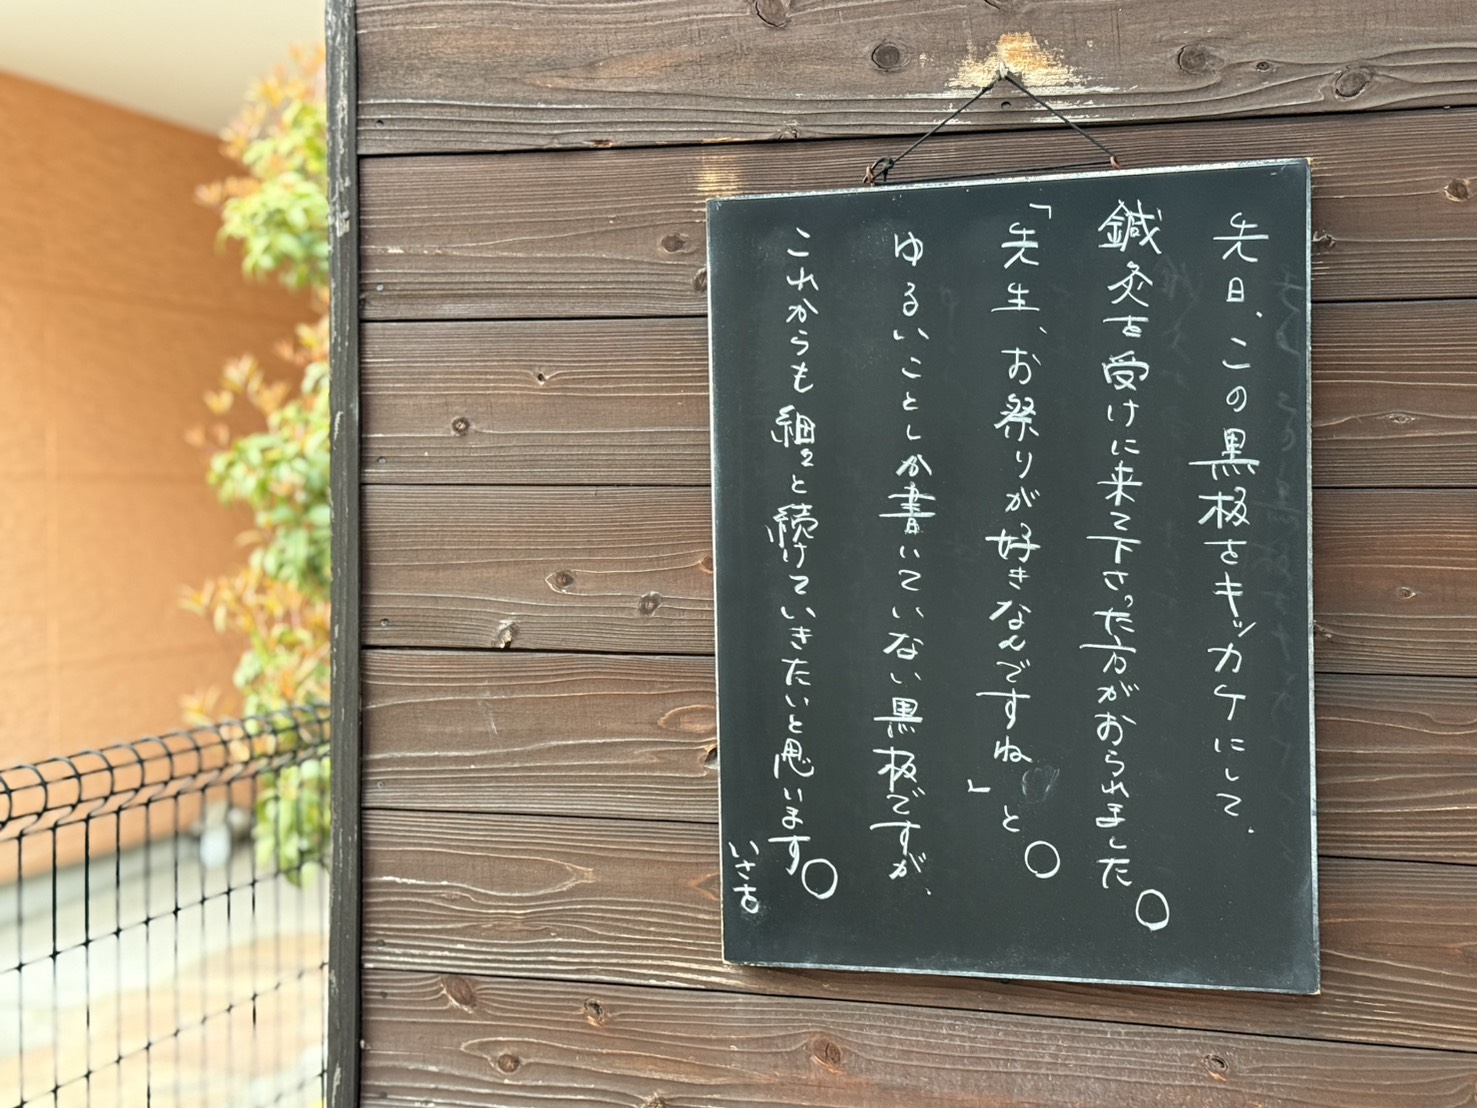 先日、この黒板をキッカケにして、
鍼灸を受けに来て下さった方がおられました。
「先生、お祭りが好きなんですね」と。
ゆるいことしか書いていない黒板ですが、
これからも細々と続けていきたいと思います。
いさ吉